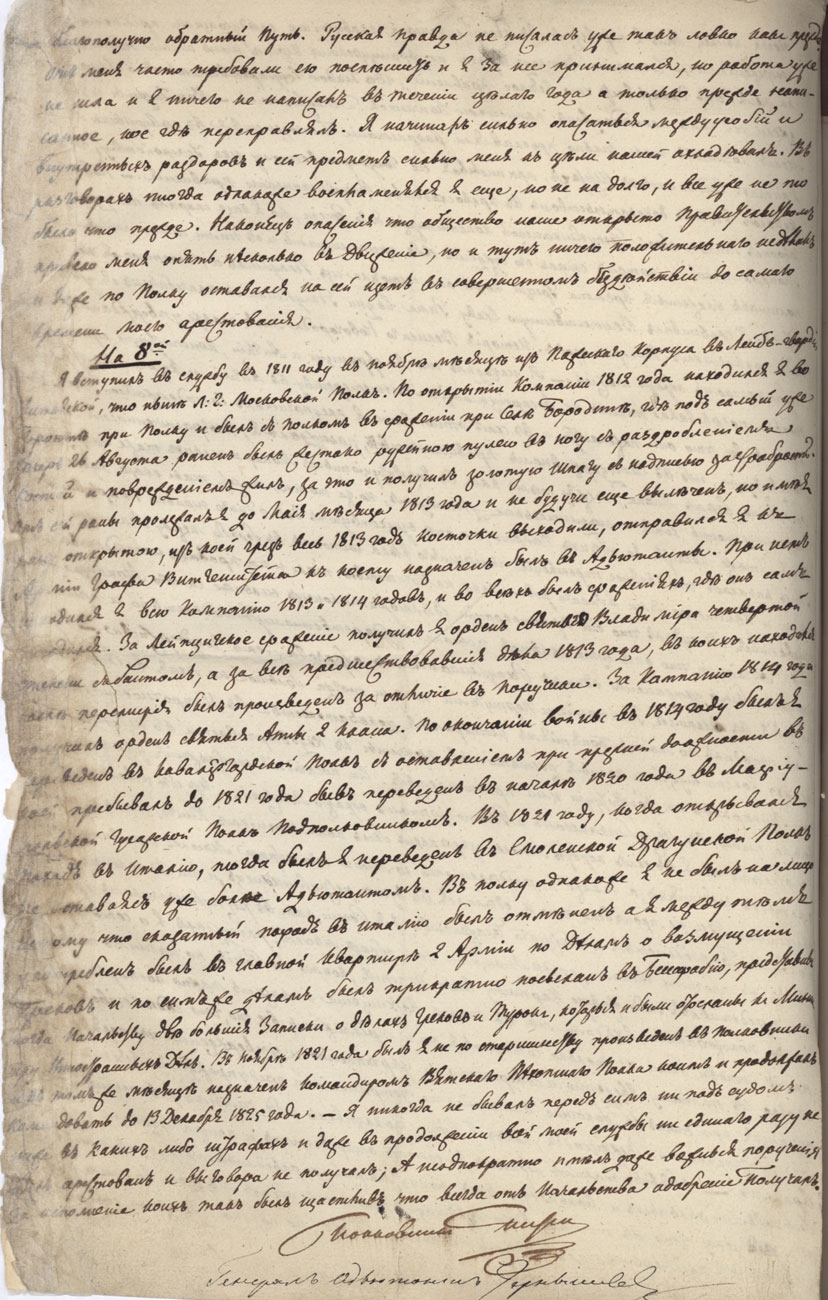 благополучно обратный Путь. Русская Правда не писалась уже так ловко как прежде
меня часто требовали ею поспешить и я за нее принимался, но работа уже
не шла и я ничего не написал в течении целаго года а только прежде напи-
санное, кое где переправлял. Я начинал сильно опасаться междуусобий и
внутренных раздоров и сей предмет сильно меня к цели нашей охладевал. В
разговорах иногда однакоже воспламенялся я еще, но не на долго, и все уже не то
было что прежде. Наконец опасения что общество наше открыто Правительством
привело меня опять несколько в движение, но и тут ничего положительнаго не делал
и даже по Полку оставался по сей щет в совершенном бездействии до самаго
времени моего арестования.
На 8ой
Я вступил в службу в 1811 году в ноябре месяце из Пажескаго Корпуса в Лейб-гвардии
Литовской, что ныне Л: Г: Московской Полк. По открытии Компании 1812 года находился я во
фронте при Полку и был с полком в сражении при Селе Бородине, где под самый уже
вечер 26 Августа ранен был жестоко ружейною пулею в ногу с раздроблением
костей и повреждением жил, за что и получил золотую Шпагу с надписью за храбрость.
От сей раны пролежал я до Маия месяца 1813 года и не будучи еще вылечен, но имея
рану открытою, из коей чрез весь 1813 год косточки выходили, отправился я к
Графа Витгенштейна к коему назначен был в Адъютанты. При нем
находился я всю Компанию 1813 и 1814 годов, и во всех был сражениях, где он сам
находился. За Лейпцигское сражение получил я орден святаго Владимира четвертой
степени с бантом, а за все предшествовавшия дела 1813 года, в коих находился
после перемирия был произведен за отличие в Поручики. За Кампанию 1814 года
получил орден святыя Анны 2 класса. По окончании войны в 1814 году был я
переведен в Кавалергардской Полк с оставлением при прежней должности в
коей пребывал до 1821 года быв переведен в начале 1820 года в Мариу-
польской Гусарской Полк Подполковником. В 1821 году, когда открывался
поход в Италию, тогда был я переведен в Смоленской Драгунской Полк
не оставаясь уже более Адъютантом. В полку однакоже я не был на лицо
потому что сказанный поход в Италию был отменен а я между тем
употреблен был в главной Квартире 2 Армии по Делам о возмущении
Греков и по сим же делам был трикратно посылаем в Бессарабию, представив
тогда Начальству две большия Записки о делах Греков и Турок, которыя и были отосланы к Мини-
стру Иностранных Дел. В ноябре 1821 года был я не по старшинству произведен в Полковники
и в том же месяце назначен командиром Вятскаго Пехотнаго Полка коим и продолжал
командовать до 13 Декабря 1825 года. — Я никогда не бывал перед сим ни под судом
ниже в каких либо штрафах и даже в продолжении всей моей службы ни единаго разу не
был арестован и выговора не получал; А неоднократно имел даже важныя поручения
в исполнение коих так был щастлив что всегда от Начальства одобрение Получал.
Полковник Пестель
Генерал Адъютант Чернышев